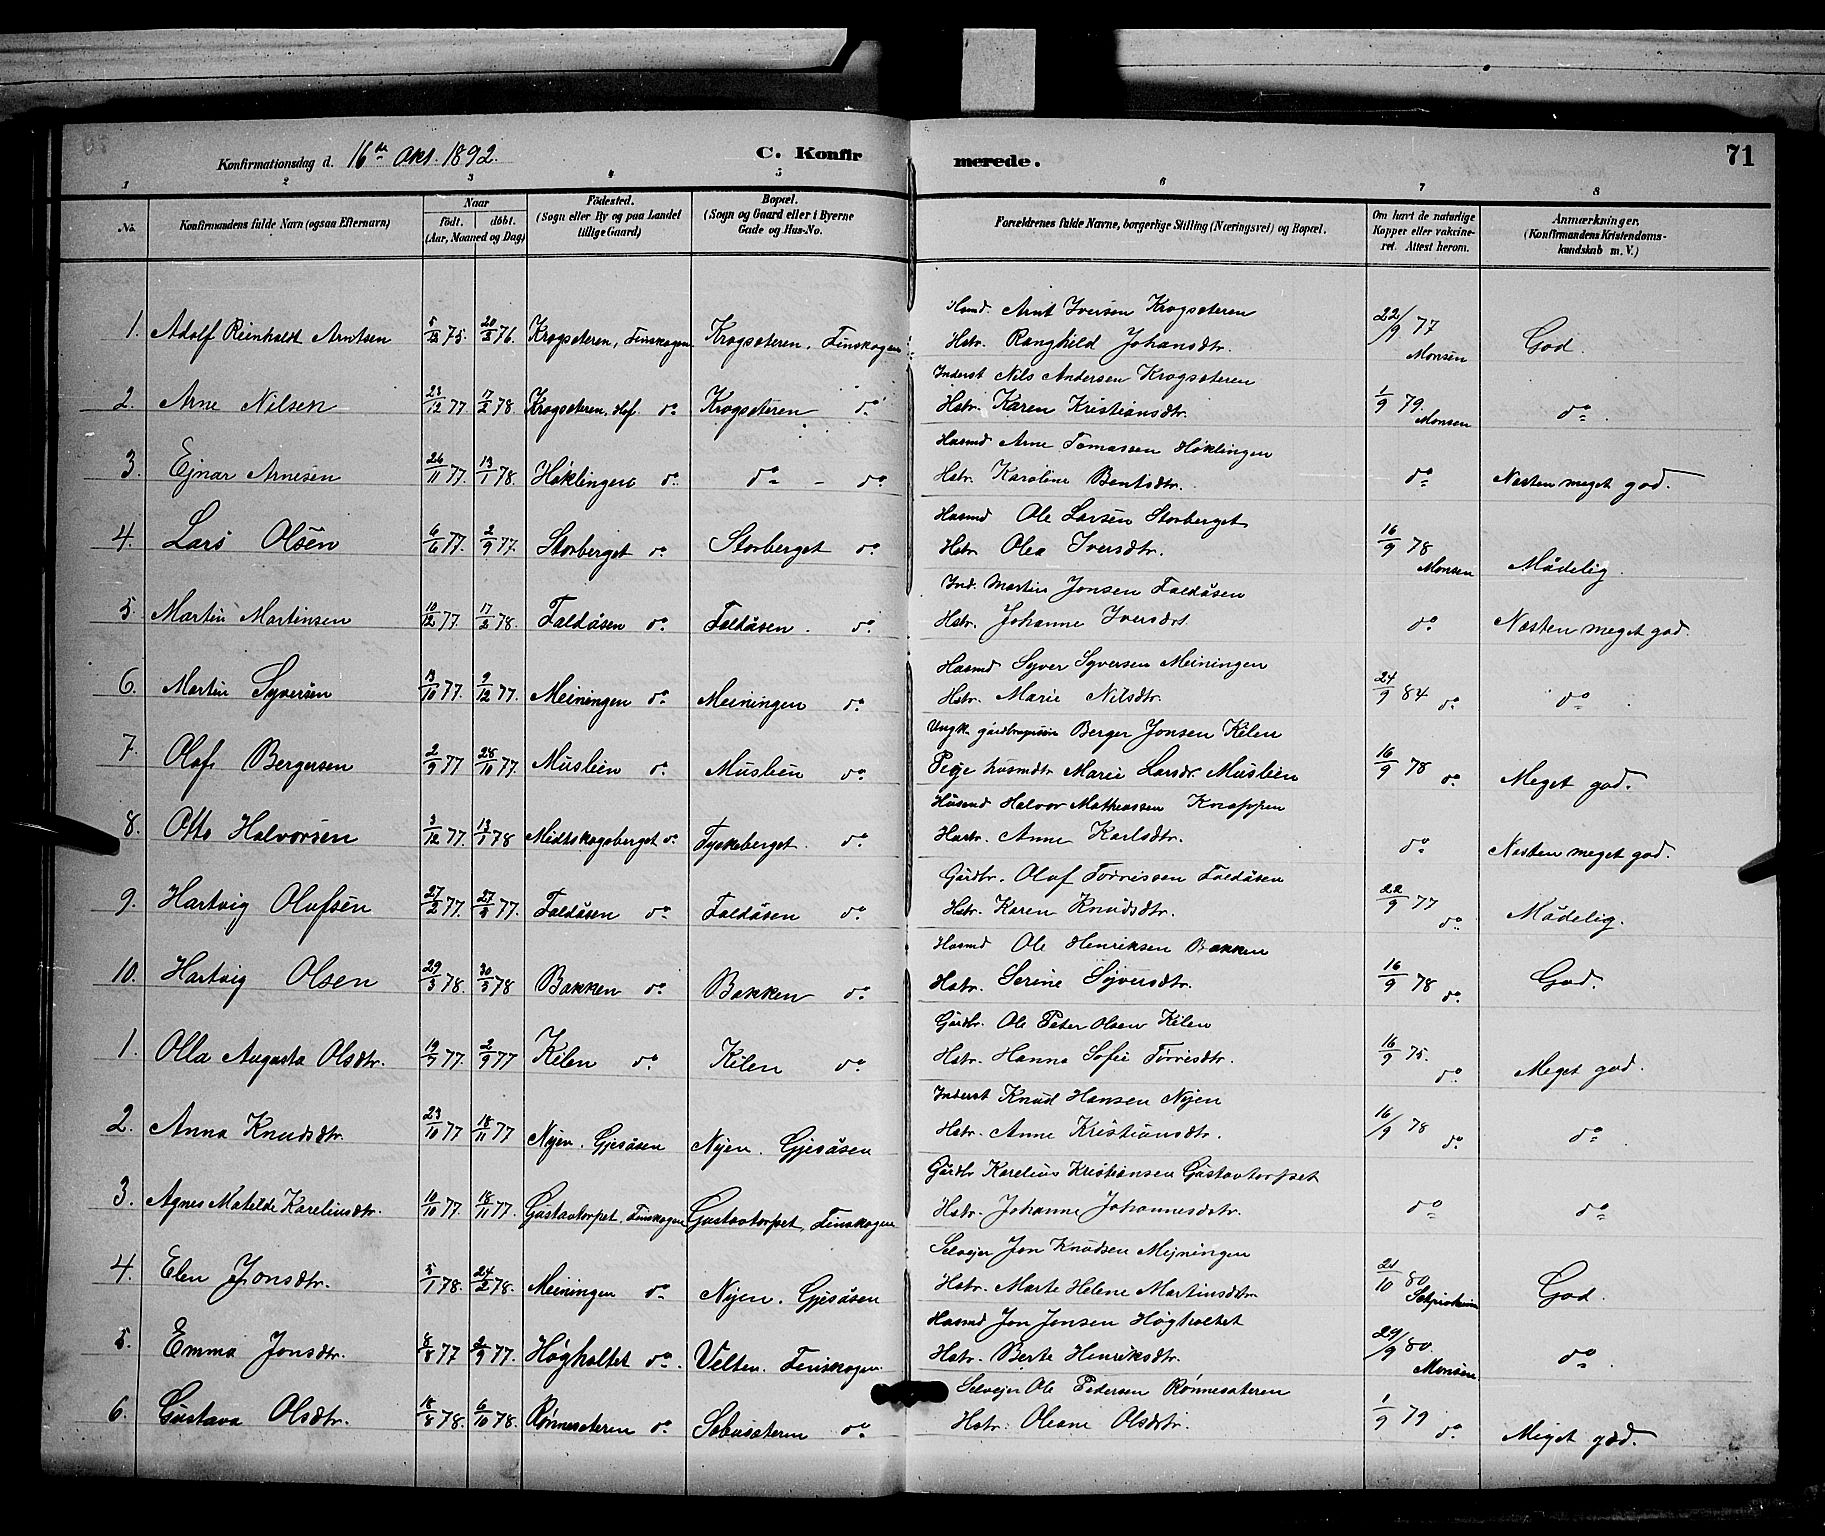 Konfirmationsdag d. 16de Okt. 1892. C. Konfirmerede. 71
1 2 3 4 5 6 7 8
No. Konfirmandens fulde Navn (ogsaa Efternavn) Naar födt. döbt. (Aar, Maaned og Dag) Födested. (Sogn eller By og paa Landet tillige Gaard) Bopæl. (Sogn og Gaard eller i Byerne Gade og Hus-No. Forældrenes fulde Navne, borgerlige Stilling (Næringsvei) og Bopæl. Om havt de naturlige Kopper eller vaksineret. Attest herom. Anmærkninger. (Konfirmandens Kristendomskundskab m. V.)
Husmd. Arnt Iversen Krogsæteren
1. Adolf Reinholdt Arntsen 5/12 75. 20/2 76. Krogsæteren, Finskogen Krogsæteren, Finskogen Hstr. Ranghild Johansdtr. 22/9 77 Monsen God.
Inderst Nils Andersen Krogsæteren
2. Arne Nilsen 23/12 77 17/2 78 Krogsæteren, Hof do Krogsæteren do Hstr. Karen Kristiansdtr. 1/9 79. Monsen do
Husmd Arne Tomassen Høklingen
3. Ejnar Arnesen 26/11 77. 13/1 78. Høklingen do do - do Hstr. Karoline Bentsdtr. do Næsten meget god.
Husmd Ole Larsen Storberget
4. Lars Olsen 6/6 77. 2/9 77. Storberget do Storberget do Hstr. Olea Iversdtr. 16/9 78 Monsen Mådelig.
Ind. Martin Jonsen Faldåsen
5. Martin Martinsen 10/12 77. 17/2 78. Faldåsen do Faldåsen. do Hstr. Johanne Iversdtr do Næsten meget god.
Husmd Syver Syversen Meiningen
6. Martin Syversen 13/10 77. 9/12 77. Meiningen do Meiningen do Hstr. Marie Nilsdtr. 24/9 84 do do
Ungk. Berger Jonsen Kilen
7. Olaf Bergersen 2/9 77 28/10 77. Muslien do Muslien do Pige husmdtr Marie Larsdr. Muslien 16/9 78 do Meget god.
Husmd Halvor Mathiassen Knappen
8. Otto Halvorsen 3/12 77. 13/1 78 Midtskogsberget do Tyskeberget. do Hustr. Anne Karlsdtr. do Næsten meget god.
Gårdbr. Olaf Torrissen Faldåsen
9. Hartvig Olafsen 27/2 77. Faldåsen do Faldåsen do Hstr. Karen Knudsdtr. 22/9 77 do Mådelig.
Husmd Ole Henriksen Bakken
10. Hartvig Olsen 29/3 78. Bakken do Bakken do Hstr. Serine Syversdtr. 16/9 78 do God.
Gårdbr. Ole Peter Olsen Kilen
1. Olla Augusta Olsdtr. 2/9 77 Kilen do Kilen do Hstr. Hanna Sofie Torrisdtr. 16/9 75. do Meget god.
Inderst Knud Hansen Nyen
2. Anna Knudsdtr 23/10 77 18/11 77 Nyen. Gjesåsen Nyen. Gjesåsen Hstr. Anne Kristiansdtr. 16/9 78 do do
Gårdbr Karelius Kristiansen Gustavtorpet
3. Agnes Matilde Kareliusdtr. 10/10 77. 18/11 77. Gustavtorpet, Finskogen Gustavtorpet, Finskogen Hstr. Johanne Johannesdtr. do do
Selvejer Jon Knudsen Mejningen
4. Elen Jonsdtr. 5/1 78. 24/2 78. Meiningen do Nyen. Gjesåsen Hstr. Marte Helene Martinsdtr 21/10 80 God.
Husmd Jon Jonsen Høgholtet
5. Emma Jonsdtr. 8/8 77 2/9 77. Høgholtet do. Velten. Finskogen. Hstr. Berte Henriksdtr. 29/9 80. Monsen do
Selvejer Ole Pedersen Rønnesæteren
6. Gustava Olsdtr. 18/8 78. 6/10 78. Rønnesæteren do Sæbusæteren do Hstr. Oleane Olsdtr. 1/9 79 do Meget god.